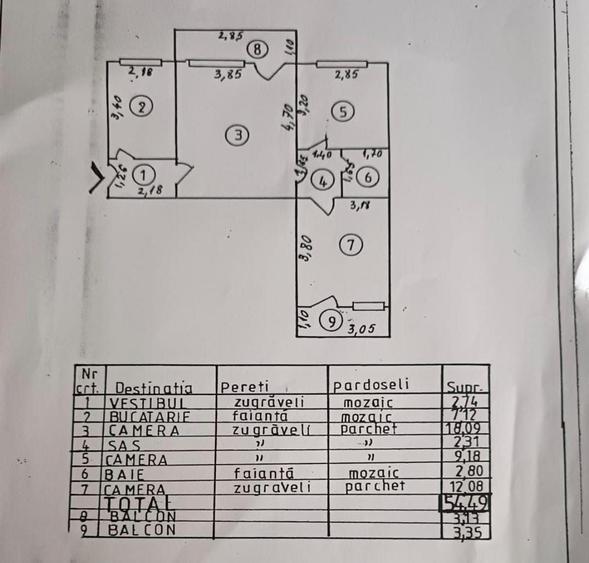 2,85
8
1,10
2,18
3,85
2,85
3,40
2
3
4,70
3,20
5
1,40
1,70
1,26
1
2,18
1,65
4
1,65
6
3,18
3,80
7
1,10
9
3,05
Nr crt. Destinatia Pereti pardoseli Supr.
1 VESTIBUL zugrăveli mozaic 2,74
2 BUCATARIE faiantă mozaic 7,12
3 CAMERA zugrăveli parchet 18,09
4 SAS " -"- 2,31
5 CAMERA " " 9,18
6 BAIE faiantă mozaic 2,80
7 CAMERA zugraveli parchet 12,08
TOTAL 54,49
8 BALCON 3,13
9 BALCON 3,35